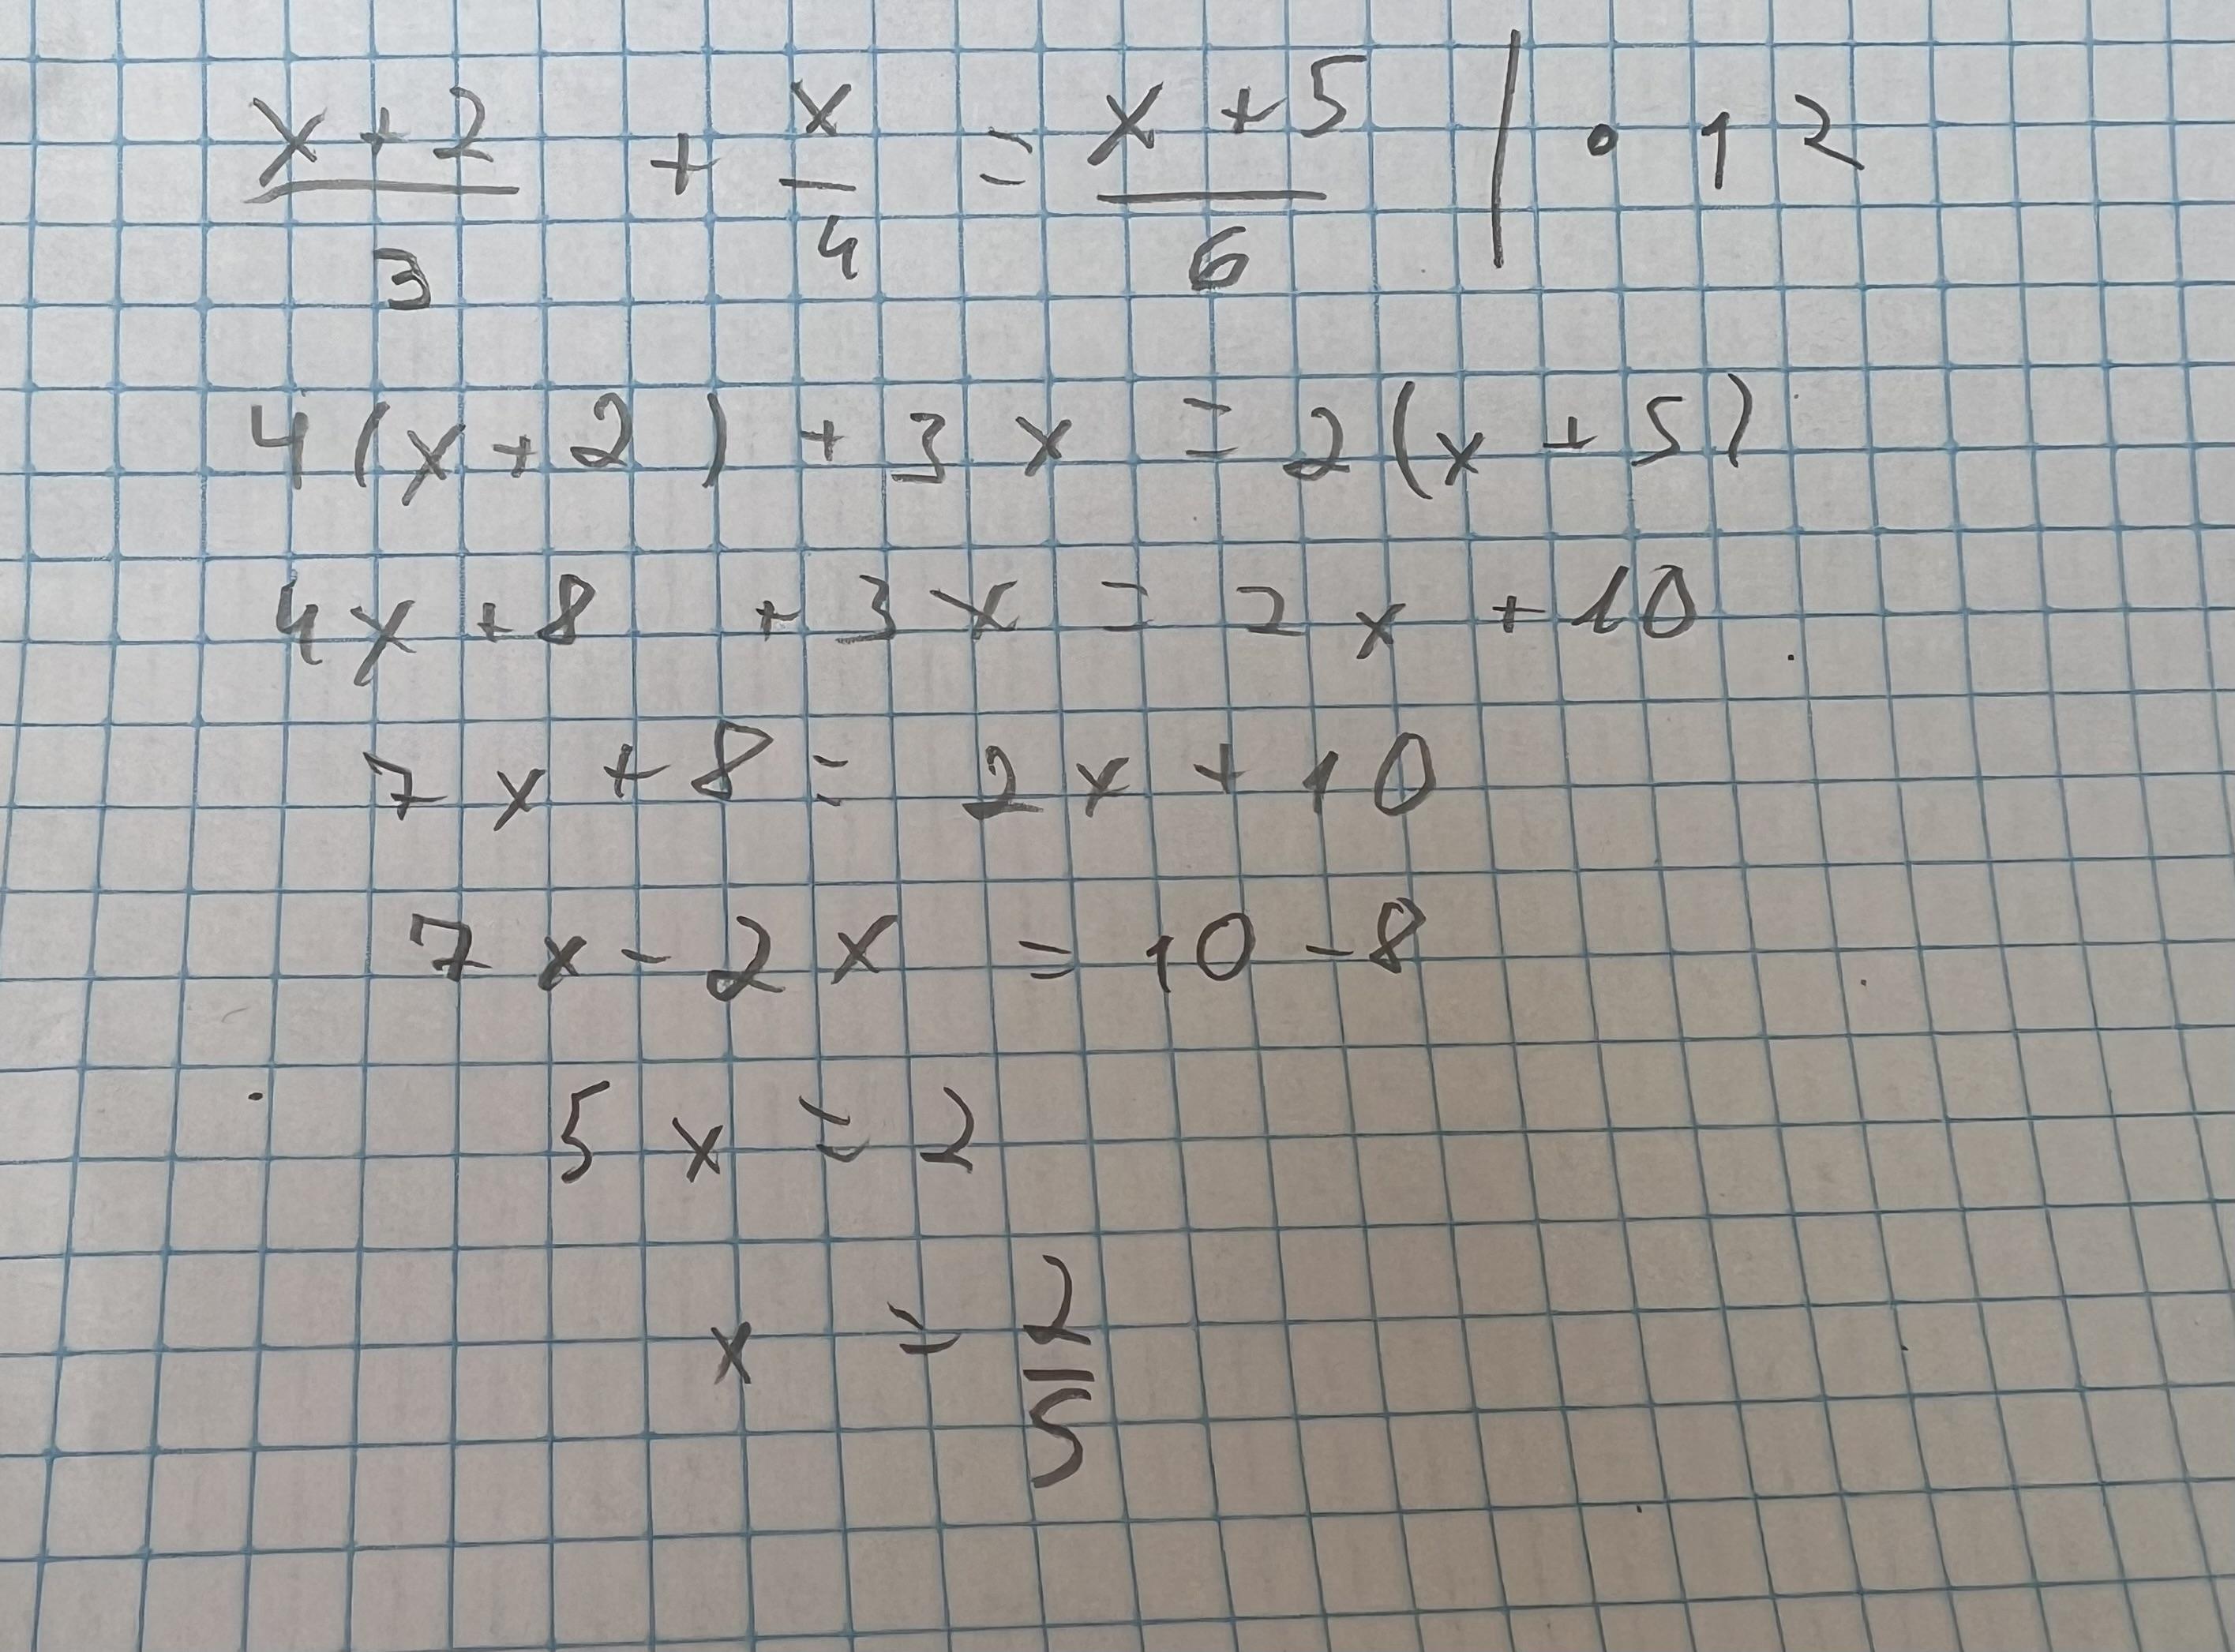 (x+2)/3 + x/4 = (x+5)/6 | • 12
4(x+2) + 3x = 2(x+5)
4x+8 + 3x = 2x + 10
7x+8 = 2x + 10
7x - 2x = 10 - 8
5x = 2
x = 2/5